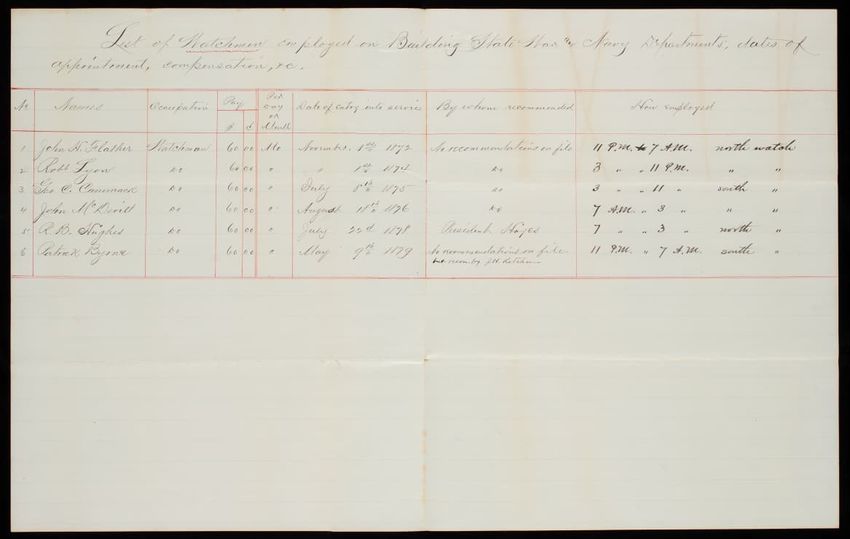 List of Watchmen employed on Building State War & Navy Departments, dates of
appointment, compensation, &c.
No Names Occupation Pay $ ¢ Per Day or Month Date of entry into service By whom recommended How employed
1 John H. Flather Watchman 60 00 Mo November 1st 1872 No recommendations on file 11 P.M. to 7 A.M. north watch
2 Robt Lyon do 60 00 " " 1st 1874 do 3 " " 11 P.M. " "
3 Geo C. Cammack do 60 00 " July 8th 1875 do 3 " " 11 " south "
4 John McDevitt do 60 00 " August 18th 1876 do 7 A.M. " 3 " " "
5 R. B. Hughes do 60 00 " July 22d 1878 President Hayes 7 " " 3 " north "
6 Patrick Byrne do 60 00 " May 9th 1879 No recommendations on file 11 P.M. " 7 A.M. south "
recom. by